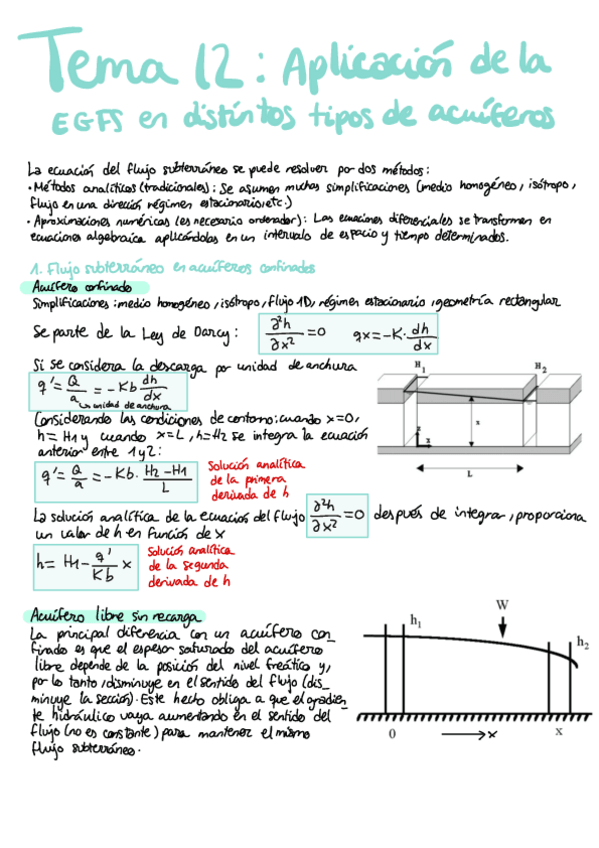 Tema 12: Aplicación de la
EGFS en distintos tipos de acuíferos
La ecuación del flujo subterráneo se puede resolver por dos métodos:
• Métodos analíticos (tradicionales): Se asumen muchas simplificaciones (medio homogéneo, isótropo,
flujo en una dirección, régimen estacionario, etc.)
• Aproximaciones numéricas (es necesario ordenador): Las ecuaciones diferenciales se transforman en
ecuaciones algebraica aplicándolas en un intervalo de espacio y tiempo determinados.
1. Flujo subterráneo en acuíferos confinados
Acuífero confinado
Simplificaciones: medio homogéneo, isótropo, flujo 1D, régimen estacionario, geometría rectangular
Se parte de la Ley de Darcy: ∂²h/∂x² = 0 qx = -K · dh/dx
Si se considera la descarga por unidad de anchura
q' = Q/a = -Kb dh/dx
↳ unidad de anchura
Considerando las condiciones de contorno: cuando x=0,
h = H1 y cuando x=L, h=H2 se integra la ecuación
anterior entre 1 y 2:
q' = Q/a = -Kb · H2-H1/L
Solución analítica
de la primera
derivada de h
H1
H2
x
z
x
L
La solución analítica de la ecuación del flujo ∂²h/∂x² = 0 después de integrar, proporciona
un valor de h en función de x
h = H1 - q'/Kb x
Solución analítica
de la segunda
derivada de h
Acuífero libre sin recarga
La principal diferencia con un acuífero con_
finado es que el espesor saturado del acuífero
libre depende de la posición del nivel freático y,
por lo tanto, disminuye en el sentido del flujo (dis_
minuye la sección). Este hecho obliga a que el gradien_
te hidráulico vaya aumentando en el sentido del
flujo (no es constante) para mantener el mismo
flujo subterráneo.
W
h1
h2
0
→x
x